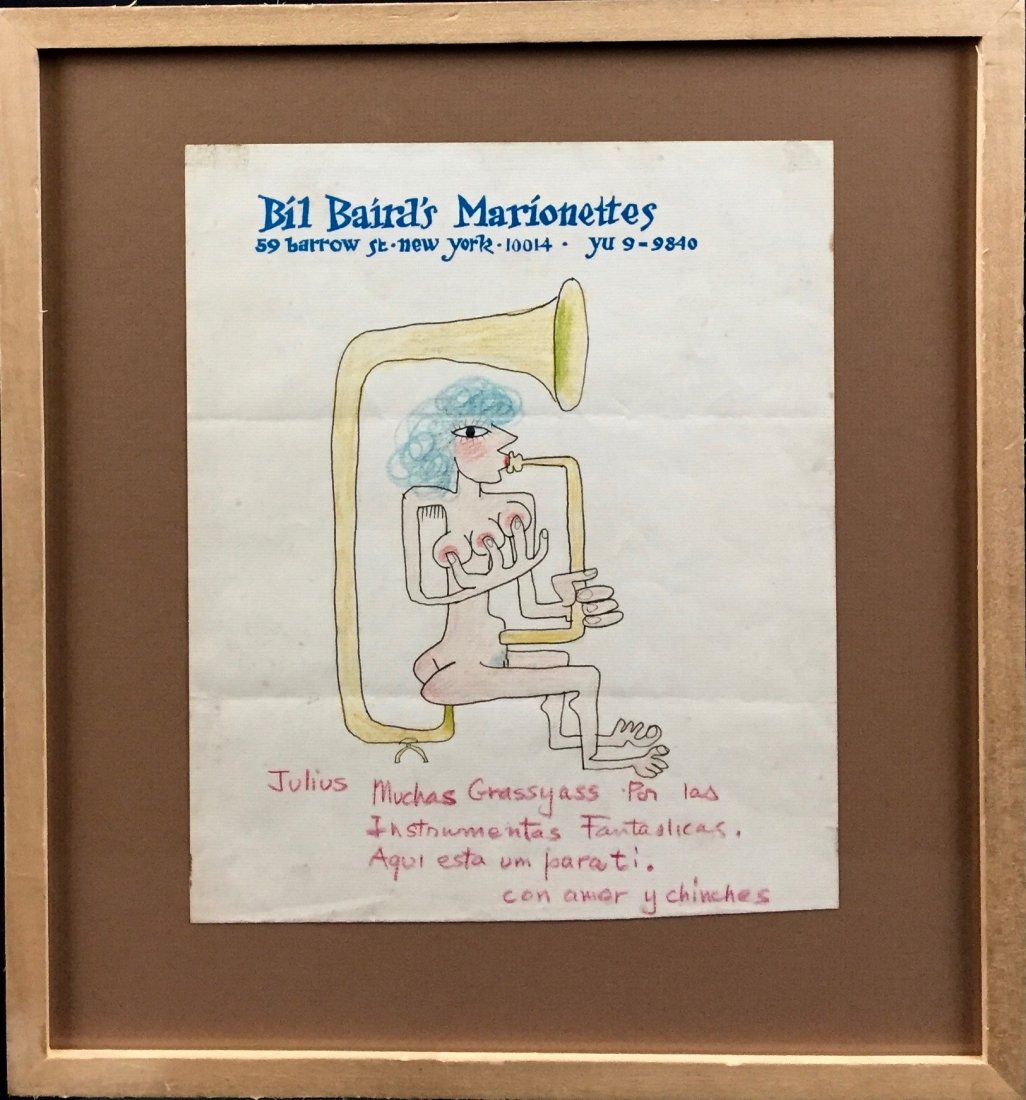 Bil Baird's Marionettes
59 barrow st · new york · 10014 · yu 9-9840
Julius Muchas Grassyass Por las
Instrumentas Fantaslicas.
Aqui esta um para ti.
con amor y chinches